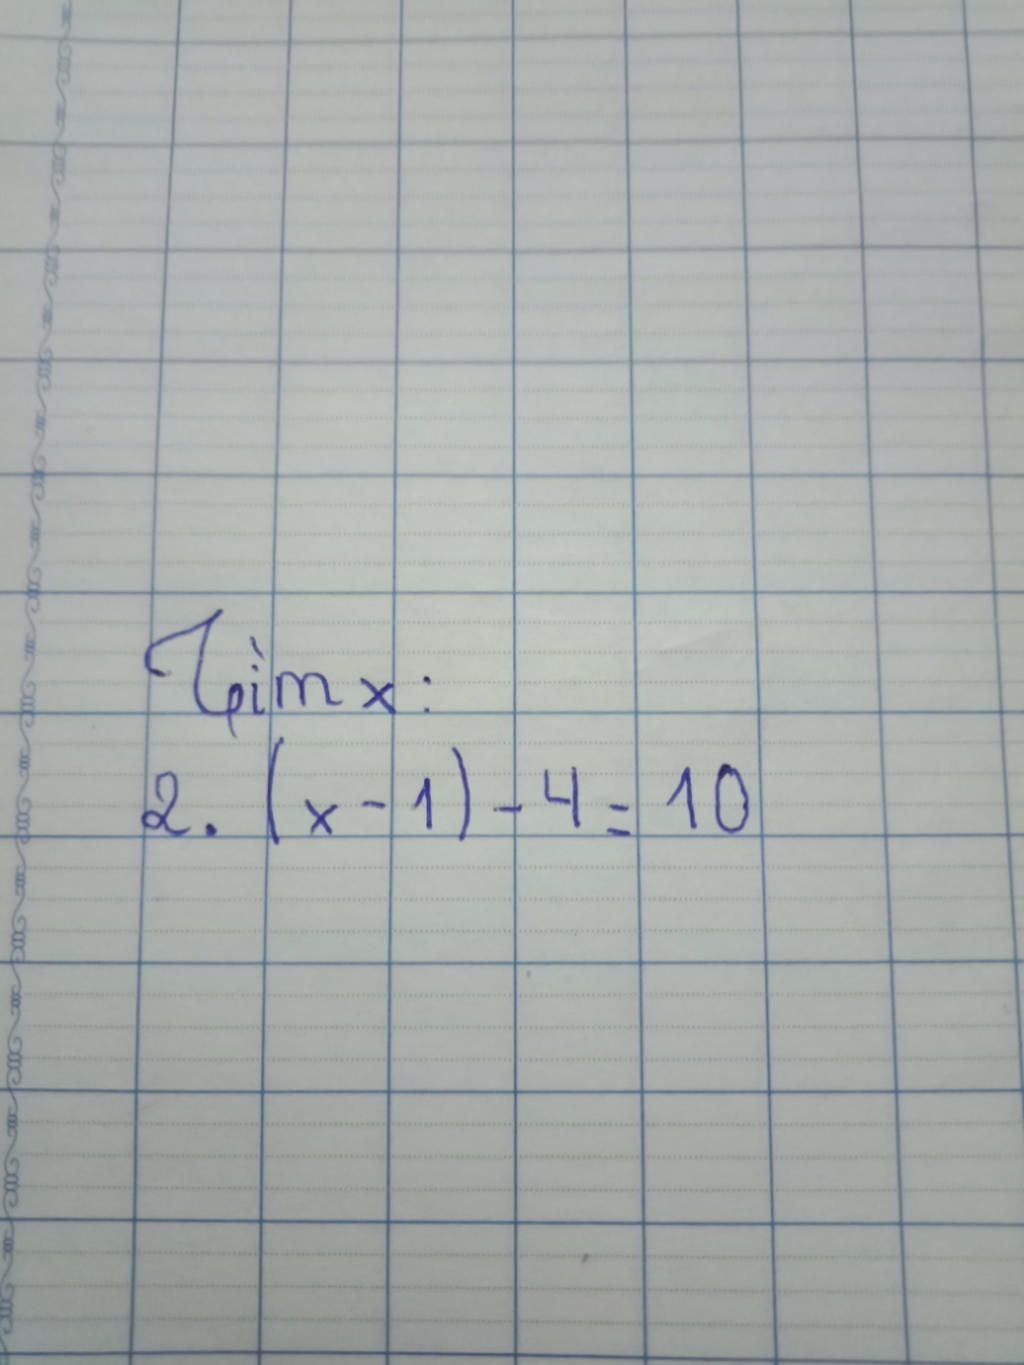 Tìm x:
2. (x - 1) - 4 = 10